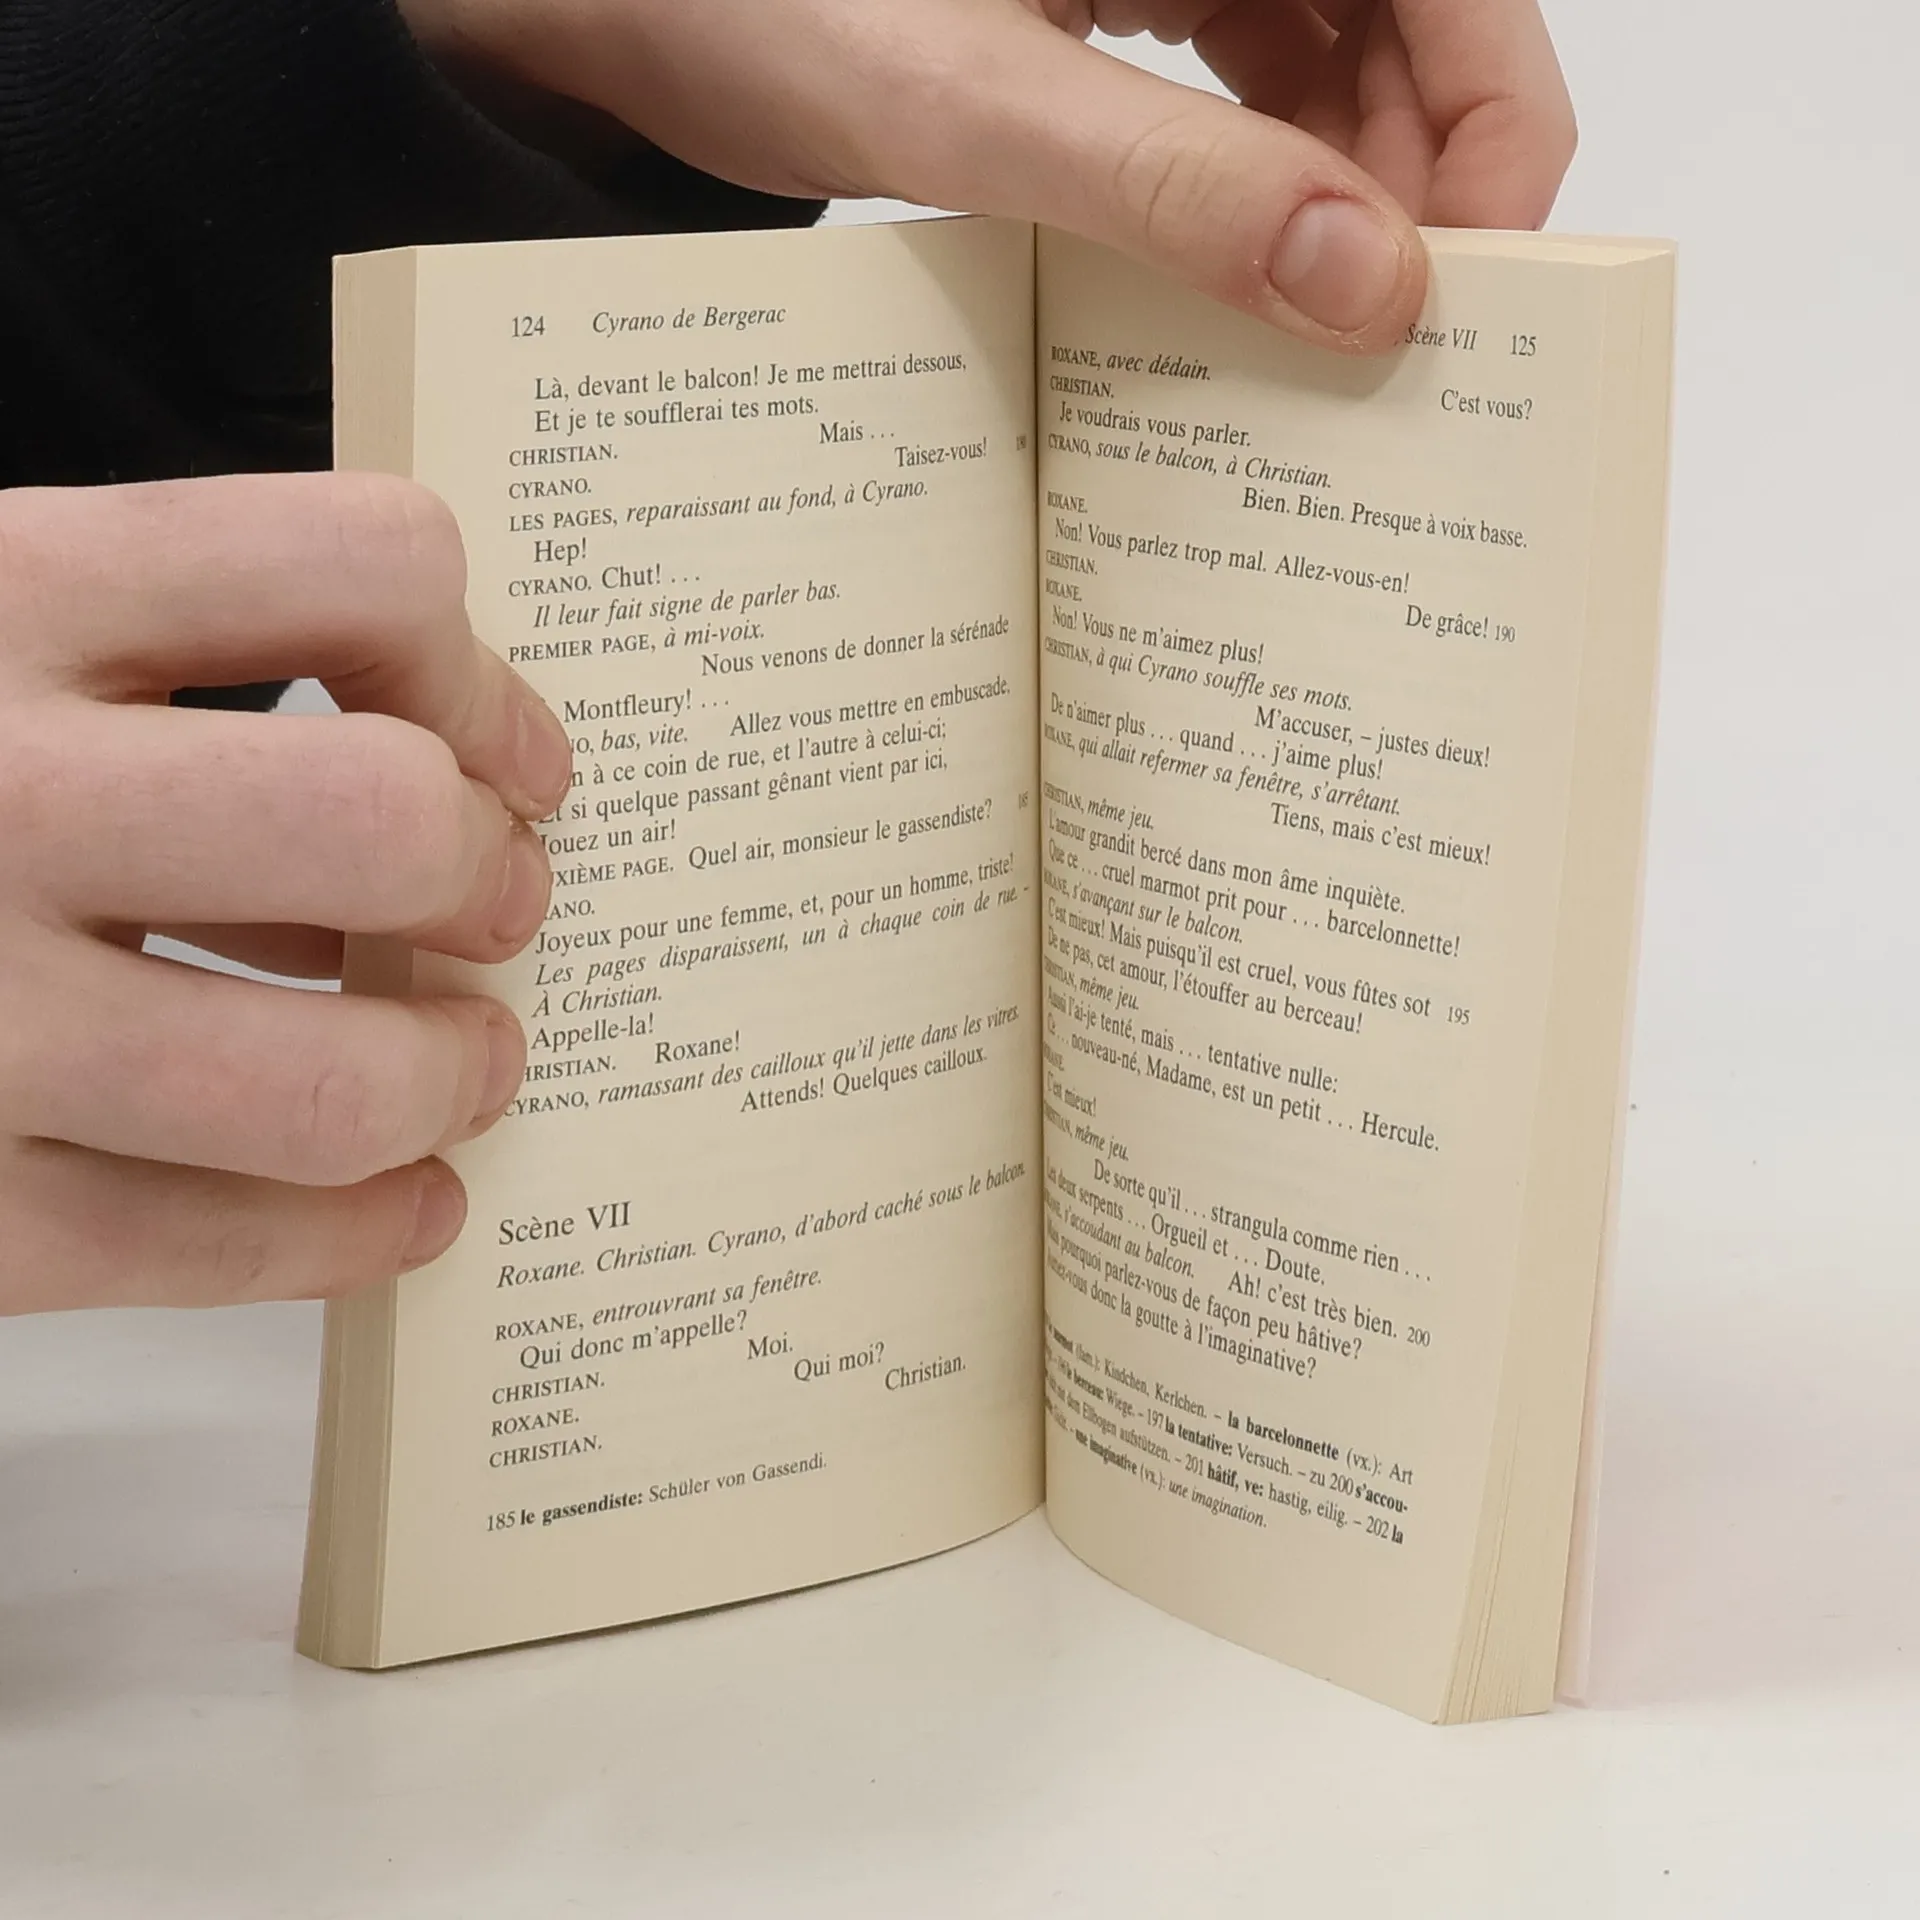 124 Cyrano de Bergerac
Là, devant le balcon! Je me mettrai dessous,
Et je te soufflerai tes mots.
CHRISTIAN. Mais ...
CYRANO. Taisez-vous! 180
LES PAGES, reparaissant au fond, à Cyrano.
Hep!
CYRANO. Chut! ...
Il leur fait signe de parler bas.
PREMIER PAGE, à mi-voix.
Nous venons de donner la sérénade
Montfleury! ...
bas, vite. Allez vous mettre en embuscade,
à ce coin de rue, et l'autre à celui-ci;
Et si quelque passant gênant vient par ici,
Jouez un air!
XIÈME PAGE. Quel air, monsieur le gassendiste? 185
ANO.
Joyeux pour une femme, et, pour un homme, triste!
Les pages disparaissent, un à chaque coin de rue. –
À Christian.
Appelle-la!
HRISTIAN. Roxane!
CYRANO, ramassant des cailloux qu'il jette dans les vitres.
Attends! Quelques cailloux.
Scène VII
Roxane. Christian. Cyrano, d'abord caché sous le balcon.
ROXANE, entrouvrant sa fenêtre.
Qui donc m'appelle?
CHRISTIAN. Moi.
ROXANE. Qui moi?
CHRISTIAN. Christian.
185 le gassendiste: Schüler von Gassendi.
Scène VII 125
ROXANE, avec dédain.
C'est vous?
CHRISTIAN.
Je voudrais vous parler.
CYRANO, sous le balcon, à Christian.
Bien. Bien. Presque à voix basse.
ROXANE.
Non! Vous parlez trop mal. Allez-vous-en!
CHRISTIAN.
De grâce! 190
ROXANE.
Non! Vous ne m'aimez plus!
CHRISTIAN, à qui Cyrano souffle ses mots.
M'accuser, – justes dieux!
De n'aimer plus ... quand ... j'aime plus!
ROXANE, qui allait refermer sa fenêtre, s'arrêtant.
Tiens, mais c'est mieux!
CHRISTIAN, même jeu.
L'amour grandit bercé dans mon âme inquiète.
Que ce ... cruel marmot prit pour ... barcelonnette!
ROXANE, s'avançant sur le balcon.
C'est mieux! Mais puisqu'il est cruel, vous fûtes sot 195
De ne pas, cet amour, l'étouffer au berceau!
CHRISTIAN, même jeu.
Aussi l'ai-je tenté, mais ... tentative nulle:
Ce ... nouveau-né, Madame, est un petit ... Hercule.
ROXANE.
C'est mieux!
CHRISTIAN, même jeu.
De sorte qu'il ... strangula comme rien ...
Les deux serpents ... Orgueil et ... Doute.
ROXANE, s'accoudant au balcon. Ah! c'est très bien. 200
Mais pourquoi parlez-vous de façon peu hâtive?
donc la goutte à l'imaginative?
marmot (fam.): Kindchen, Kerlchen. – la barcelonnette (vx.): Art
le berceau: Wiege. – 197 la tentative: Versuch. – zu 200 s'accou-
mit dem Ellbogen aufstützen. – 201 hâtif, ve: hastig, eilig. – 202 la
Gicht. – une imaginative (vx.): une imagination.